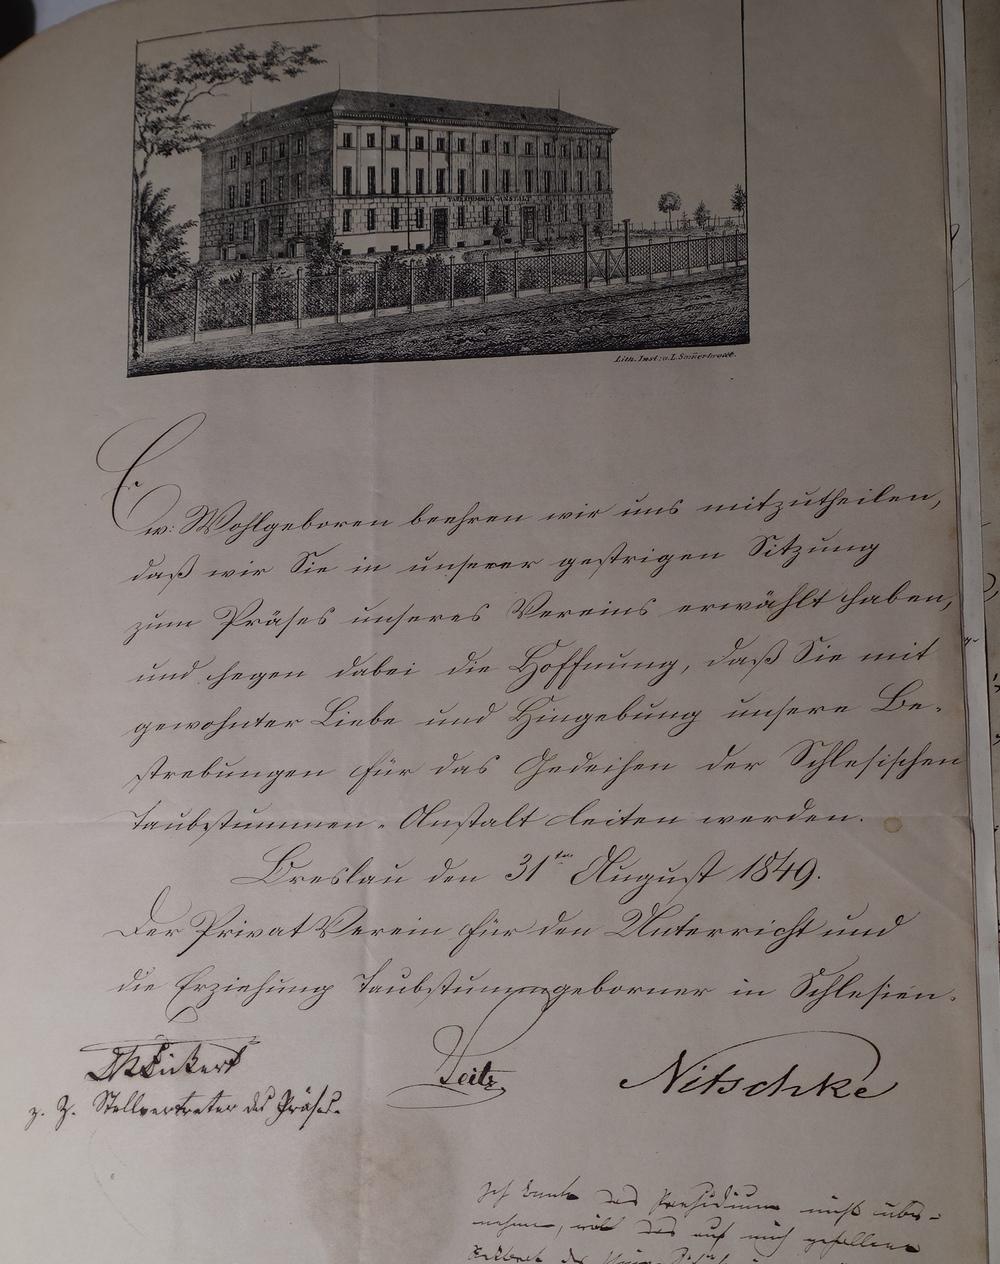 TAUBSTUMMEN-ANSTALT
Lith. Inst: v. L. Sauerbrodt.
Ew: Wohlgeboren beehren wir uns mitzutheilen,
daß wir Sie in unserer gestrigen Sitzung
zum Präses unseres Vereins erwählt haben,
und hegen dabei die Hoffnung, daß Sie mit
gewohnter Liebe und Hingebung unsere Be-
strebungen für das Gedeihen der Schlesischen
Taubstummen-Anstalt leiten werden.
Breslau den 31ten August 1849.
Der Privat Verein für den Unterricht und
die Erziehung Taubstummgeborner in Schlesien.
Seitz Nitschke
z. Z. Stellvertreter des Präses.
Ich kann das Praesidium nicht über-
nehmen, weil das auf mich gefallene